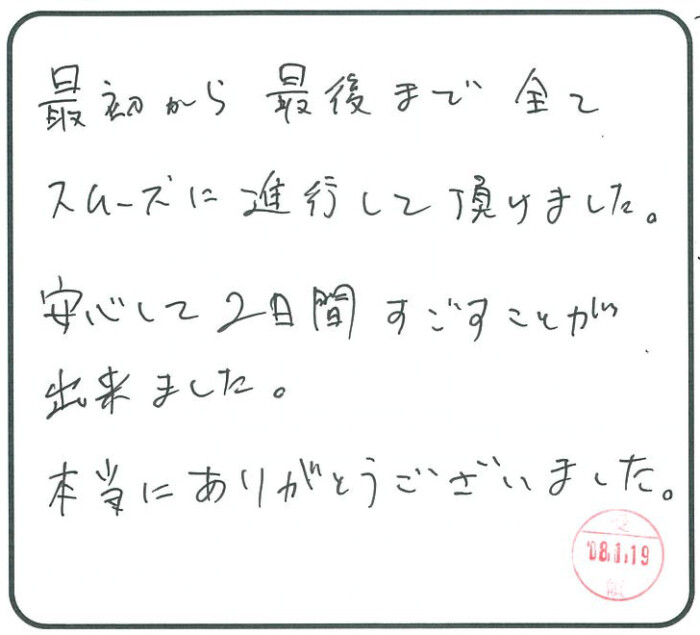 最初から最後まで全て
スムーズに進行して頂けました。
安心して2日間すごすことが
出来ました。
本当にありがとうございました。
'08.1.19